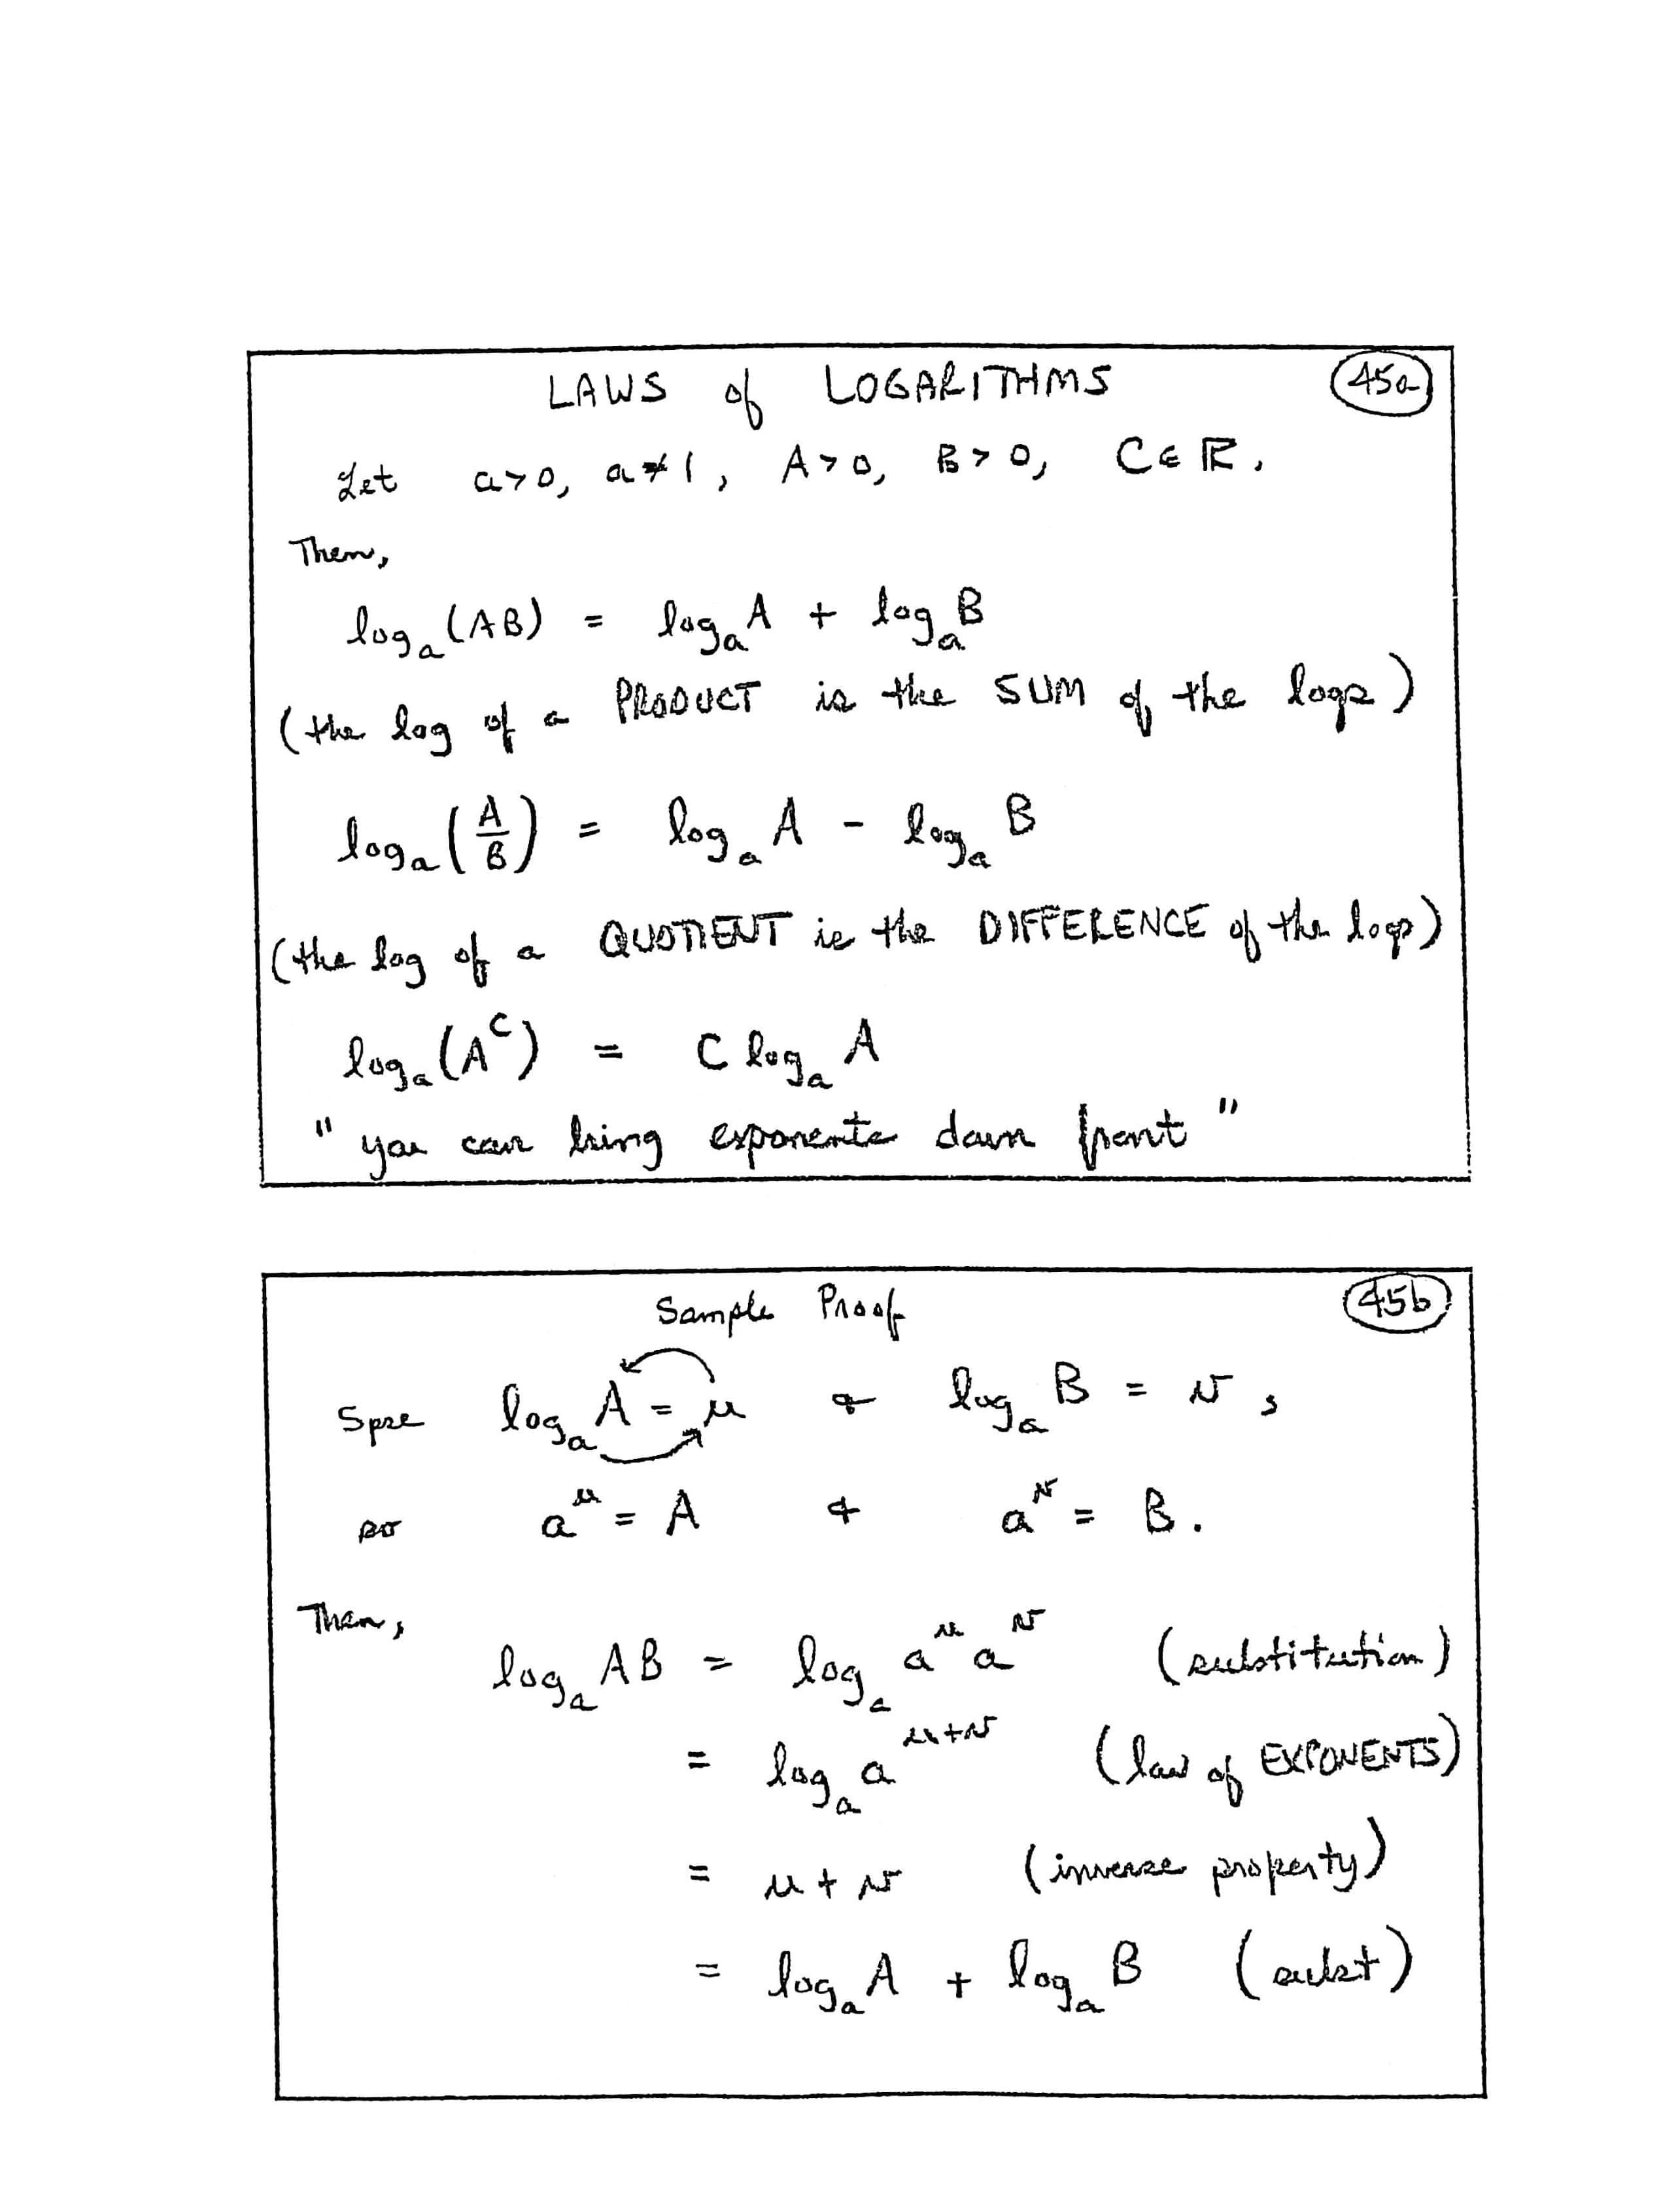 LAWS of LOGARITHMS 45a
Let a>0, a≠1, A>0, B>0, C∈ℝ.
Then,
logₐ(AB) = logₐA + logₐB
(the log of a PRODUCT is the SUM of the logs)
logₐ(A/B) = logₐ A - logₐ B
(the log of a QUOTIENT is the DIFFERENCE of the logs)
logₐ(A^C) = C logₐ A
"you can bring exponents down front"
Sample Proof 45b
Spse logₐ A = u & logₐ B = v,
so a^u = A & a^v = B.
Then,
logₐ AB = logₐ a^u a^v (substitution)
= logₐ a^(u+v) (law of EXPONENTS)
= u + v (inverse property)
= logₐ A + logₐ B (subst)